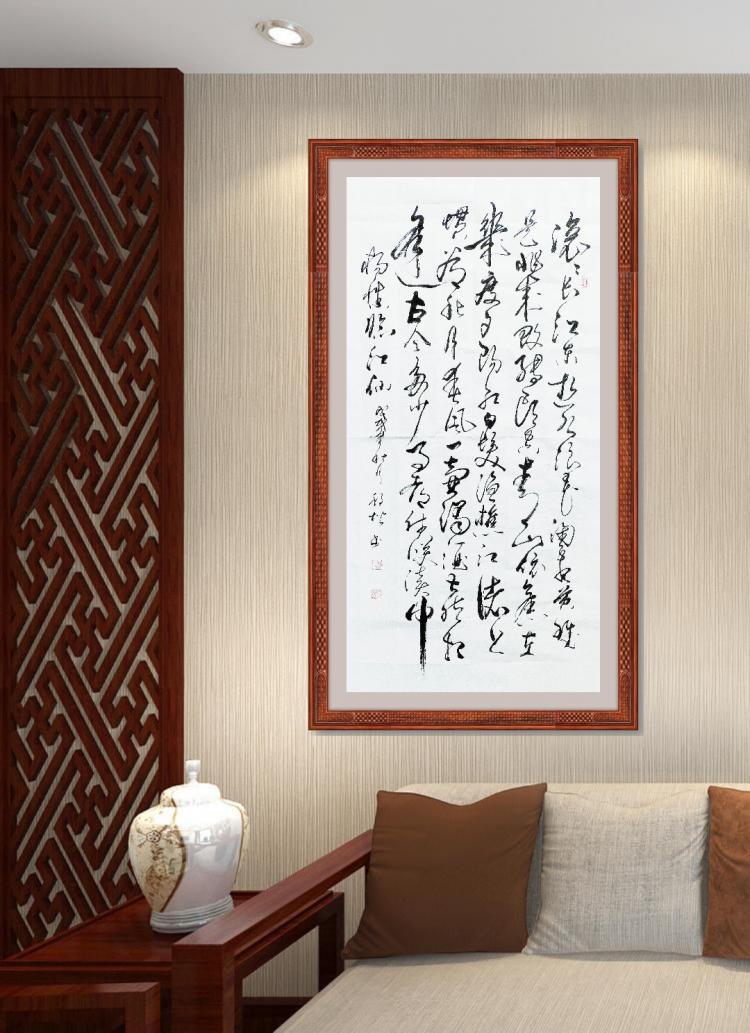 滚滚长江东逝水浪花淘尽英雄
是非成败转头空青山依旧在
几度夕阳红白发渔樵江渚上
惯看秋月春风一壶浊酒喜相
逢古今多少事都付笑谈中
杨慎临江仙 秋月 书